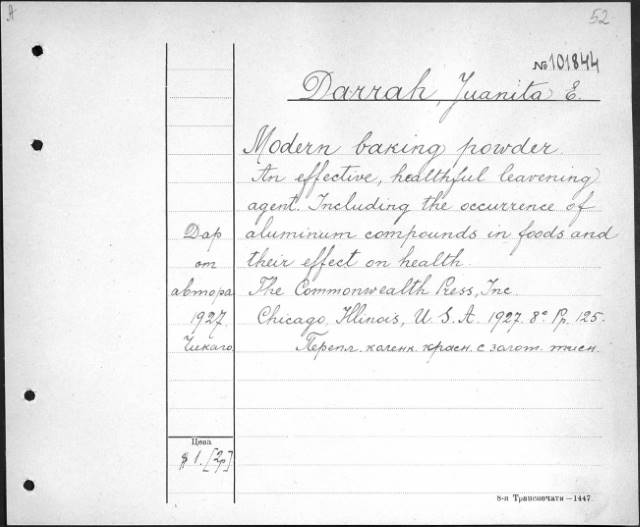 A
52
№101844
Darrah, Juanita E.
Modern baking powder.
An effective, healthful leavening
agent. Including the occurrence of
aluminum compounds in foods and
their effect on health.
The Commonwealth Press, Inc.
Chicago, Illinois, U. S. A. 1927. 8° Pp. 125.
Перепл. коленк. красн. с золот. тисн.
Дар
от
автора
1927.
Чикаго
Цена
$ 1. [2р]
8-я Транспечати—1447.